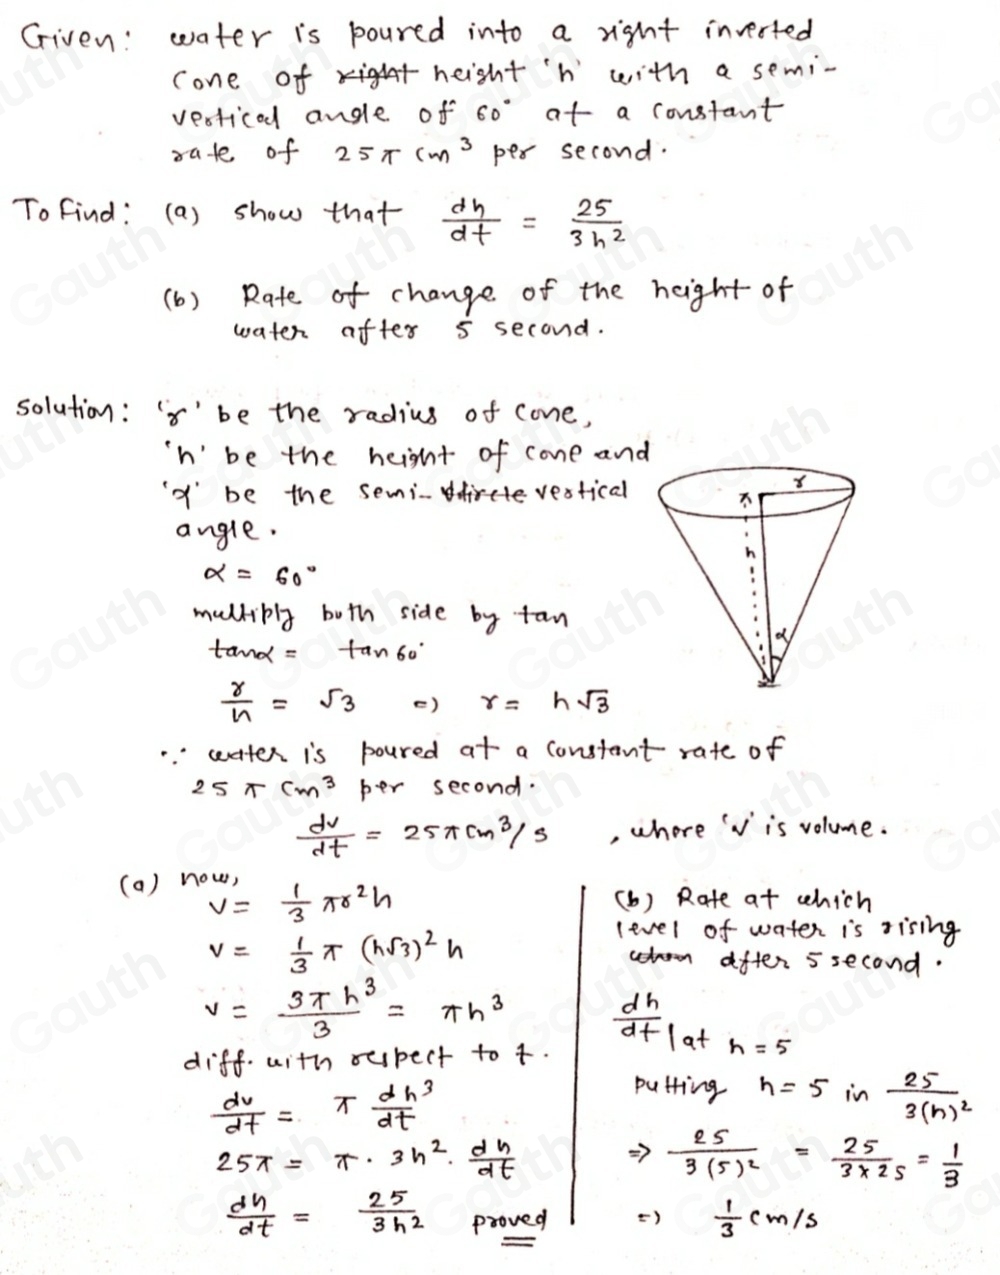 Given: water is poured into a right inverted
cone of right height 'h' with a semi-
vertical angle of 60° at a constant
rate of 25π cm³ per second.
To find: (a) show that dh/dt = 25/3h²
(b) Rate of change of the height of
water after 5 second.
Solution: 'r' be the radius of cone,
'h' be the height of cone and
'α' be the semi- vertical
angle.
α = 60°
multiply both side by tan
tanα = tan 60°
r/h = √3 => r = h√3
∵ water is poured at a constant rate of
25 π cm³ per second.
dv/dt = 25π cm³/s , where 'v' is volume.
r
h
α
(a) now,
v = 1/3 πr²h
v = 1/3 π (h√3)² h
v = 3πh³/3 = πh³
diff. with respect to t.
dv/dt = π dh³/dt
25π = π. 3h². dh/dt
dh/dt = 25/3h² proved
(b) Rate at which
level of water is rising
when after 5 second.
dh/dt | at h = 5
putting h = 5 in 25/3(h)²
=> 25/3(5)² = 25/3×25 = 1/3
=> 1/3 cm/s
Gauth